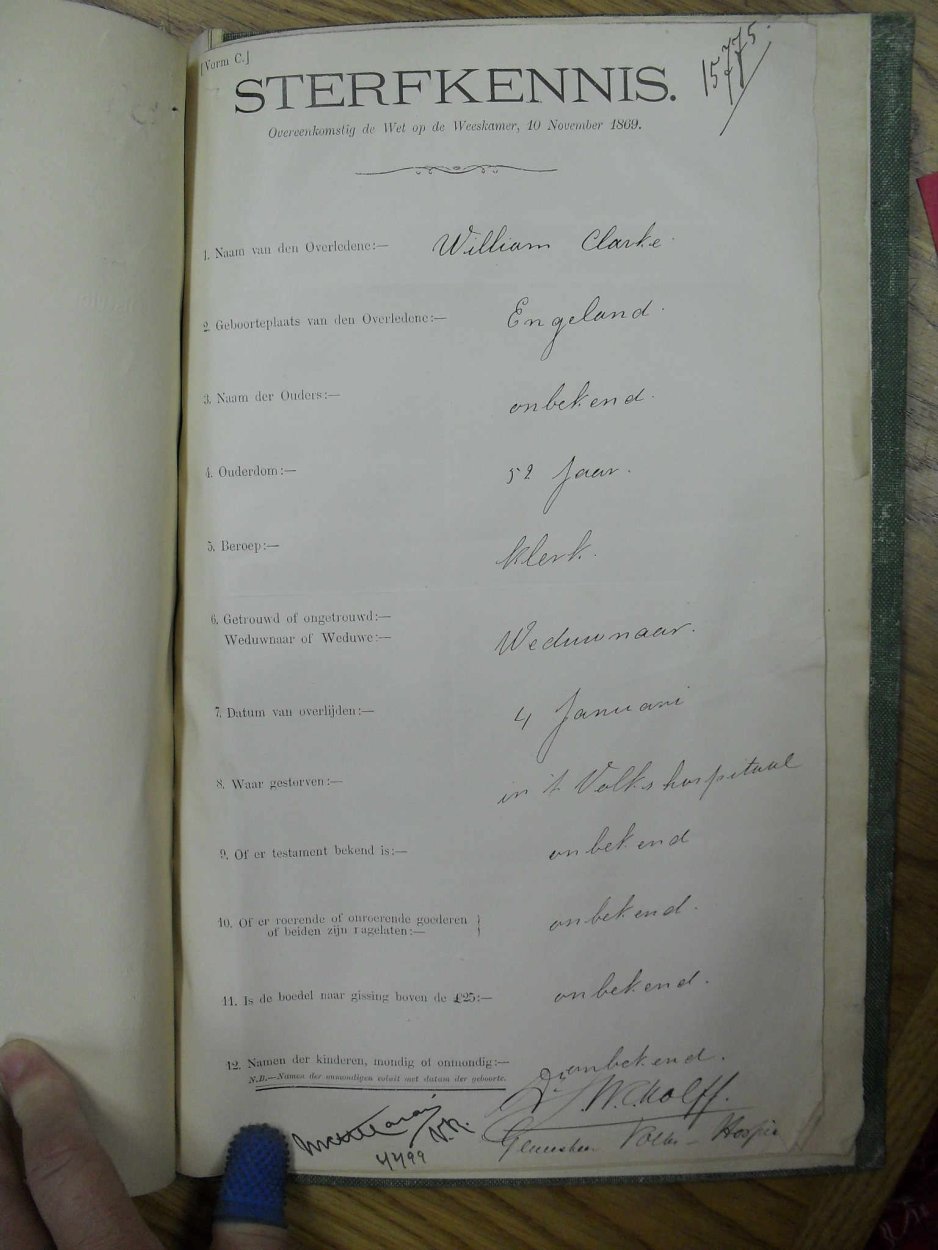 [Vorm C.]
15775.
STERFKENNIS.
Overeenkomstig de Wet op de Weeskamer, 10 November 1869.
1. Naam van den Overledene:— William Clarke.
2. Geboorteplaats van den Overledene:— Engeland.
3. Naam der Ouders:— onbekend.
4. Ouderdom:— 52 Jaar.
5. Beroep:— Klerk.
6. Getrouwd of ongetrouwd:—
Weduwnaar of Weduwe:— Weduwnaar.
7. Datum van overlijden:— 4 Januari
8. Waar gestorven:— in 't Volkshospitaal
9. Of er testament bekend is:— onbekend
10. Of er roerende of onroerende goederen }
of beiden zijn nagelaten:— onbekend.
11. Is de boedel naar gissing boven de £25:— onbekend.
12. Namen der kinderen, mondig of onmondig:— onbekend.
N.B.—Namen der onmondigen voluit met datum der geboorte.
Volks-Hosp